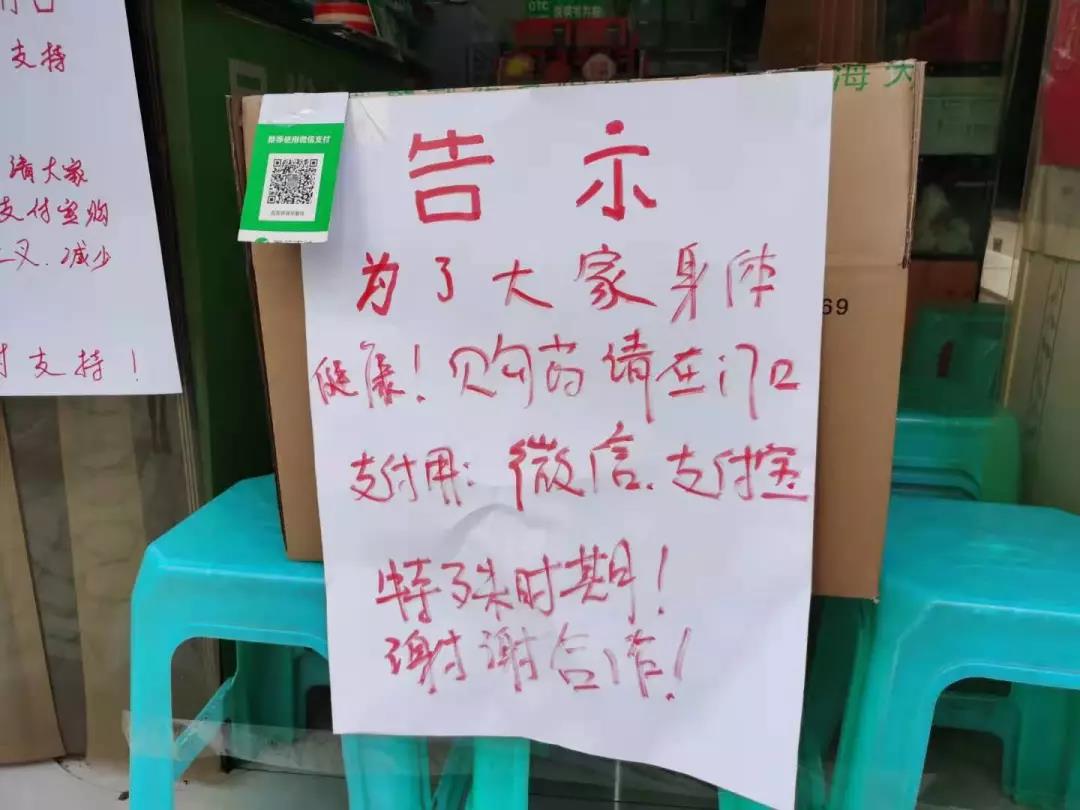 支持
请大家
支付宝购
叉.减少
支持！
推荐使用微信支付
OTC
海大
69
告示
为了大家身体
健康！购药请在门口
支付用：微信.支付宝
特殊时期！
谢谢合作！